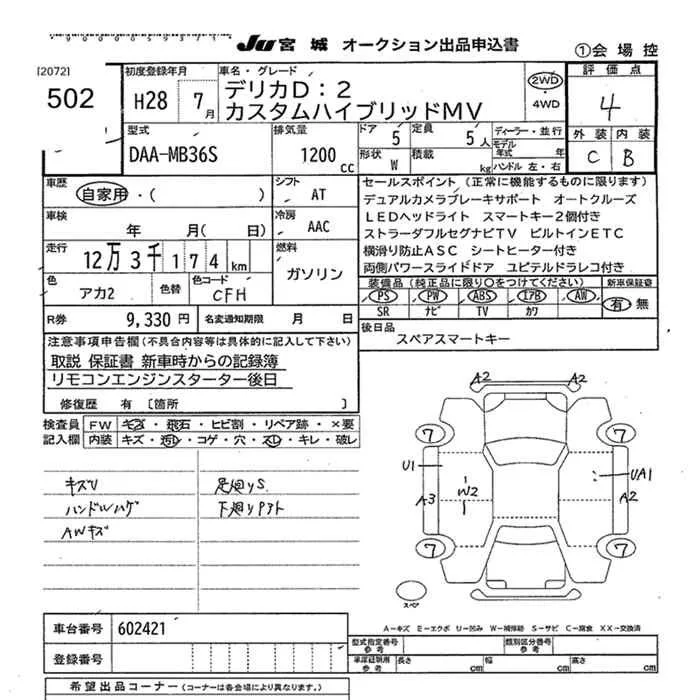 JU 宮城 オークション出品申込書
①会場控
[2072]
502
初度登録年月
H28 7月
車名・グレード
デリカD:2
カスタムハイブリッドMV
2WD
・
4WD
評価点
4
外装 内装
C B
型式
DAA-MB36S
排気量
1200 cc
ドア 5
定員 5 人
ディーラー・並行
モデル年式 年
形状 W
積載 kg
ハンドル 左・右
車歴
自家用・( )
シフト AT
車検 年 月( 日)
冷房 AAC
走行 12万3千174 km
燃料
ガソリン
色 アカ2
色替
色コード CFH
R券 9,330円
名変通知期限 月 日
セールスポイント (正常に機能するものに限ります)
デュアルカメラブレーキサポート オートクルーズ
LEDヘッドライト スマートキー2個付き
ストラーダフルセグナビTV ビルトインETC
横滑り防止ASC シートヒーター付き
両側パワースライドドア ユピテルドラレコ付き
装備品(純正品に限り○をつけてください)
新車保証書
PS PW ABS エアB AW
有・無
SR ナビ TV カワ
後日品
スペアスマートキー
注意事項申告欄(不具合内容等は具体的に記入して下さい)
取説 保証書 新車時からの記録簿
リモコンエンジンスターター後日
修復歴 有 〔箇所 〕
検査員記入欄
FW キズ・飛石・ヒビ割・リペア跡・×要
内装 キズ・汚レ・コゲ・穴・スレ・キレ・破レ
キズU
ハンドルハゲ
AWキズ
足廻りS
下廻りサビ
A2
7 7
U1
A3
W2
UA1
A2
7 7
A2
スペア
A―キズ E―エクボ U―凹み W―補修跡 S―サビ C―腐食 XX―交換済
車台番号 602421
登録番号
型式指定番号
参考
類別区分番号
参考
車庫証明用
参考
長さ cm
幅 cm
高さ cm
希望出品コーナー(コーナーは各会場により異なります。)